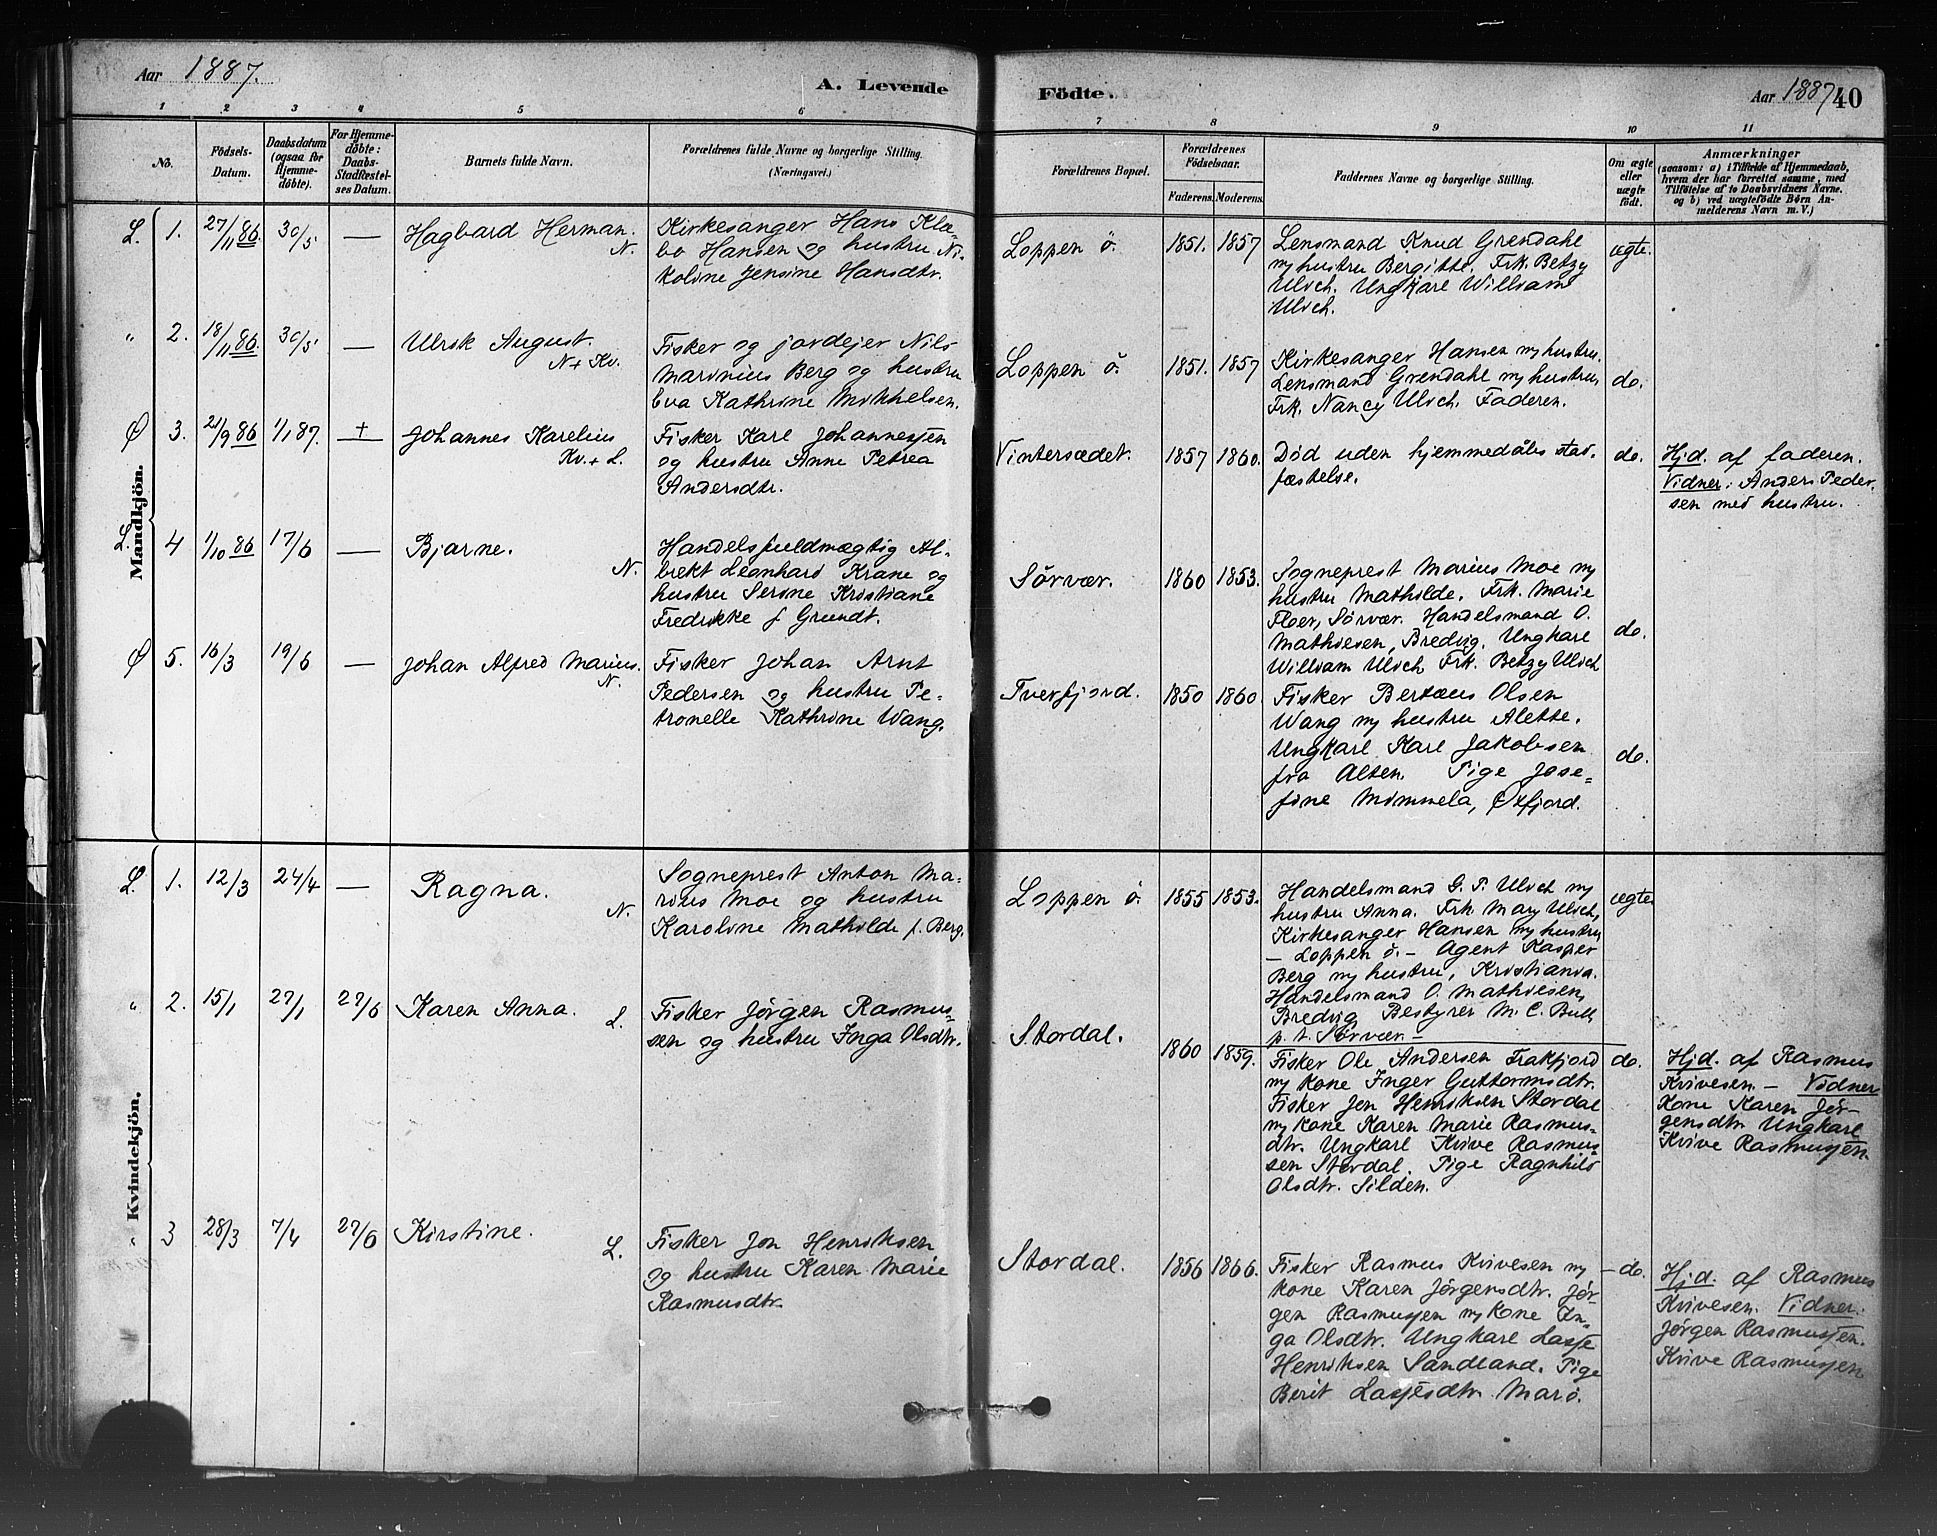 Aar 1887.
A. Levende
Födte.
Aar 1887
40
1 2 3 4 5 6
7 8 9 10 11
No.
Födsels-
Datum.
Daabsdatum
(ogsaa for
Hjemme-
döbte).
For Hjemme-
döbte:
Daabs-
Stadfæstel-
ses Datum.
Barnets fulde Navn.
Forældrenes fulde Navne og borgerlige Stilling.
(Næringsvei.)
Forældrenes Bopæl.
Forældrenes
Födselsaar.
Faderens. Moderens.
Faddernes Navne og borgerlige Stilling.
Om ægte
eller
uægte
födt.
Anmærkninger
(saasom: a) i Tilfælde af Hjemmedaab,
hvem der har forrettet samme, med
Tilföielse af to Daabsvidners Navne.
og b) ved uægtefödte Børn An-
melderens Navn m. V.)
Mandkjön.
L. 1. 27/11 86. 30/5 — Hagbard Herman.
N.
Kirkesanger Hans Klæ-
bo Hansen og hustru Ni-
koline Jensine Hansdtr.
Loppen ö. 1851. 1857
Lensmand Knud Grendahl
m/hustru Bergitte. Frk. Betzy
Ulich. Ungkarl William
Ulich.
ægte.
" 2. 18/11 86. 30/5 — Ulrik August.
N + Kv.
Fisker og jordejer Nils
Marinius Berg og hustru
Eva Kathrine Mikkelsen.
Loppen ö. 1851. 1857
Kirkesanger Hansen m/hustru.
Lensmand Grendahl m/hustru,
Frk. Nancy Ulich. Faderen.
do.
Ø 3. 21/9 86 1/1 87. + Johannes Karelius
Kv. + L.
Fisker Karl Johannessen
og hustru Anne Petrea
Andersdtr.
Vintersædet. 1857 1860.
Død uden hjemmedåbs stad-
fæstelse.
do.
Hjd. af faderen.
Vidner: Anders Peder-
sen med hustru.
L. 4 1/10 86 17/6 — Bjarne.
N.
Handelsfuldmægtig Al-
brekt Leonhard Krane og
hustru Serine Kristiane
Fredrikke f Grundt.
Sørvær. 1860 1853.
Sogneprest Marius Moe m/
hustru Mathilde. Frk. Marie
Floer, Sørvær. Handelsmand O.
Mathiesen, Bredvig. Ungkarl
William Ulich Frk. Betzy Ulich
do.
Ø 5. 16/3 19/6 — Johan Alfred Marius.
N.
Fisker Johan Arnt
Pedersen og hustru Pe-
tronelle Kathrine Wang.
Tverfjord. 1850 1860.
Fisker Bertæus Olsen
Wang m/hustru Alette.
Ungkarl Karl Jakobsen
fra Alten. Pige Jose-
fine Mimmela, Øxfjord.
do.
Kvindekjön.
L. 1. 12/3 24/4 — Ragna.
N.
Sogneprest Anton Ma-
rius Moe og hustru
Karoline Mathilde f. Berg.
Loppen ö. 1855 1853.
Handelsmand G. P. Ulich m/
hustru Anna. Frk. Mary Ulich,
Kirkesanger Hansen m/hustru
– Loppen ö. – Agent Kasper
Berg m/hustru, Kristiania.
Handelsmand O. Mathiesen,
Bredvig Bestyrer M. C. Bull
p. t. Sørvær –
ægte.
" 2. 15/1 27/1 27/6 Karen Anna.
L.
Fisker Jørgen Rasmus-
sen og hustru Inga Olsdtr.
Stordal. 1860 1859.
Fisker Ole Andersen Frakfjord
m/kone Inger Guttormsdtr.
Fisker Jon Henriksen Stordal
m/kone Karen Marie Rasmus-
dtr. Ungkarl Kvive Rasmus-
sen Stordal. Pige Ragnhild
Olsdtr. Silden.
do.
Hjd. af Rasmus
Kvivesen. – Vidner
Kone Karen Jør-
gensdtr Ungkarl
Kvive Rasmussen.
" 3 28/3 7/4 27/6 Kirstine.
L.
Fisker Jon Henriksen
og hustru Karen Marie
Rasmusdtr.
Stordal. 1856 1866.
Fisker Rasmus Kvivesen m/
kone Karen Jørgensdtr. Jør-
gen Rasmussen m/kone In-
ga Olsdtr. Ungkarl Lasse
Henriksen Sandland. Pige
Berit Lassesdtr. Marö.
– do.
Hjd. af Rasmus
Kvivesen. Vidner:
Jørgen Rasmussen.
Kvive Rasmussen